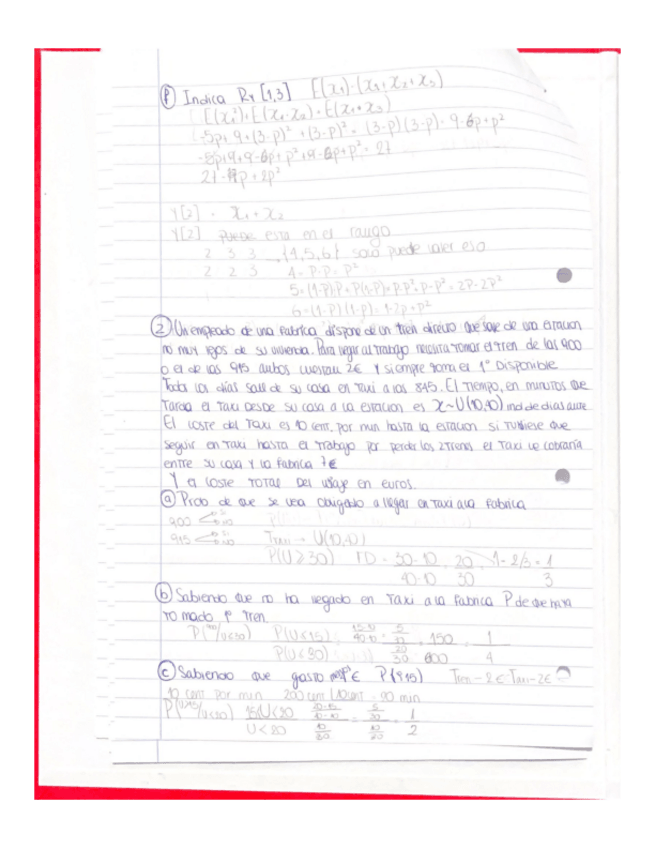 f Indica Ry [1,3] E(x1)·(x1+x2+x3)
E(x1²)+E(x1·x2)+E(x1·x3)
-5p+9+(3-p)²+(3-p)²= (3-p)(3-p)= 9-6p+p²
-5p+9+9-6p+p²+9-6p+p²= 27
27-17p+2p²
Y[2] = X1+X2
Y[2] puede esta en el rango
2 3 3 {4,5,6} solo puede valer eso
2 2 3 4=p·p=p²
5=(1-p)·p+p(1-p)=p-p²+p-p²=2p-2p²
6=(1-p)(1-p)=1-2p+p²
2 Un empleado de una fabrica dispone de un tren directo que sale de una estacion
no muy lejos de su vivienda. Para llegar al trabajo necesita tomar el tren de las 900
o el de las 915 ambos cuestan 2€ y siempre toma el 1º disponible
Todos los dias sale de su casa en Taxi a las 845. El tiempo, en minutos que
tarda el Taxi desde su casa a la estacion es X~U(10,40) ind de dias a
El coste del Taxi es 10 cent. por min hasta la estacion si tuviese que
seguir en Taxi hasta el trabajo por perder los 2 trenes el Taxi le cobraria
entre su casa y la fabrica 7€
Y el coste total del viaje en euros.
a Prob de que se vea obligado a llegar en Taxi a la fabrica
900 si no
915 si no Taxi → U(10,40)
P(U≥30) FD = 30-10/40-10 = 20/30 1-2/3=1/3
b Sabiendo que no ha llegado en Taxi a la fabrica P de que haya
tomado 1º tren
P(900/U<30) P(U<15)/P(U<30) = 15-10/40-10 = 5/30 / 20/30 = 150/600 = 1/4
c Sabiendo que gasto 4€ P(915) Tren-2€ Taxi-2€
10 cent por min 200 cent
P( /U<20) 15<U<20/U<20 5/30 / 10/30 = 1/2